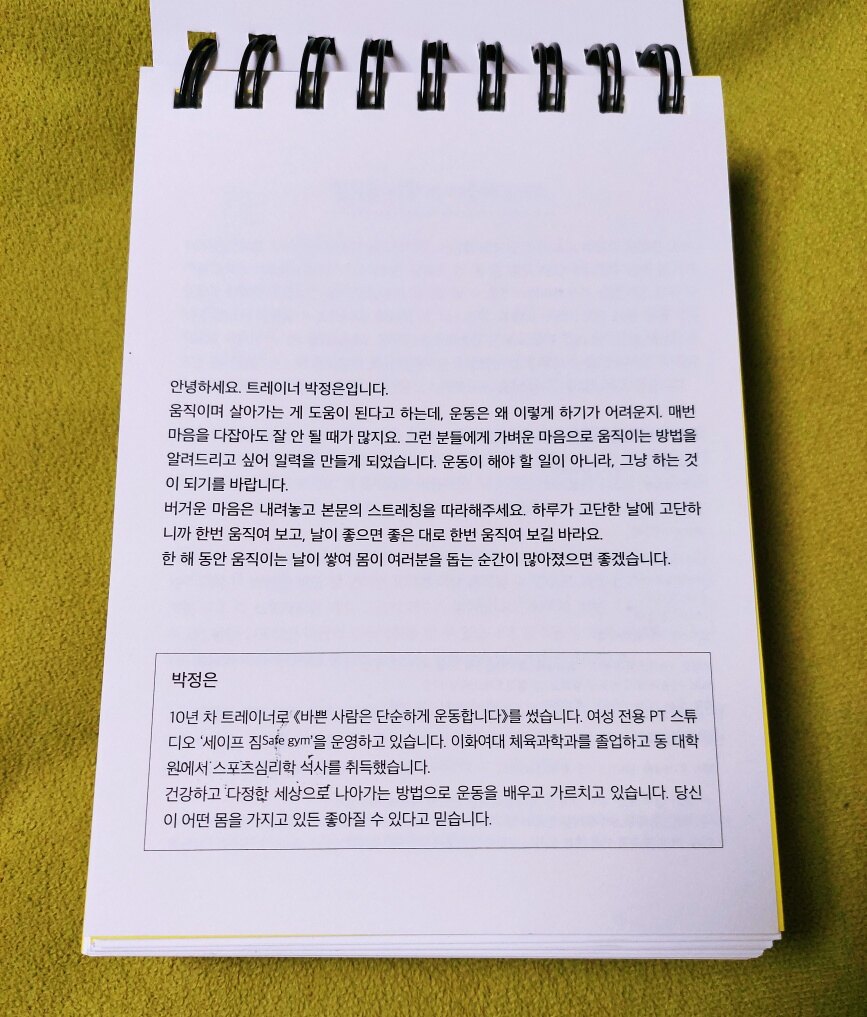 안녕하세요. 트레이너 박정은입니다.
움직이며 살아가는 게 도움이 된다고 하는데, 운동은 왜 이렇게 하기가 어려운지. 매번
마음을 다잡아도 잘 안 될 때가 많지요. 그런 분들에게 가벼운 마음으로 움직이는 방법을
알려드리고 싶어 일력을 만들게 되었습니다. 운동이 해야 할 일이 아니라, 그냥 하는 것
이 되기를 바랍니다.
버거운 마음은 내려놓고 본문의 스트레칭을 따라해주세요. 하루가 고단한 날에 고단하
니까 한번 움직여 보고, 날이 좋으면 좋은 대로 한번 움직여 보길 바라요.
한 해 동안 움직이는 날이 쌓여 몸이 여러분을 돕는 순간이 많아졌으면 좋겠습니다.
박정은
10년 차 트레이너로 《바쁜 사람은 단순하게 운동합니다》를 썼습니다. 여성 전용 PT 스튜
디오 ‘세이프 짐Safe gym’을 운영하고 있습니다. 이화여대 체육과학과를 졸업하고 동 대학
원에서 스포츠심리학 석사를 취득했습니다.
건강하고 다정한 세상으로 나아가는 방법으로 운동을 배우고 가르치고 있습니다. 당신
이 어떤 몸을 가지고 있든 좋아질 수 있다고 믿습니다.